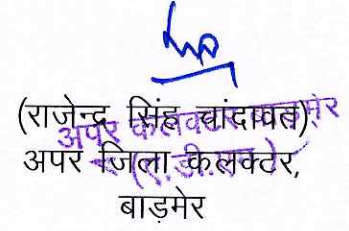 (राजेन्द्र सिंह चांदावत)
अपर कलक्टर बाड़मेर
अपर जिला कलक्टेर,
बाड़मेर